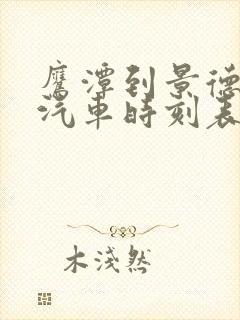 鹰潭到景德
汽車時刻表
木淺然